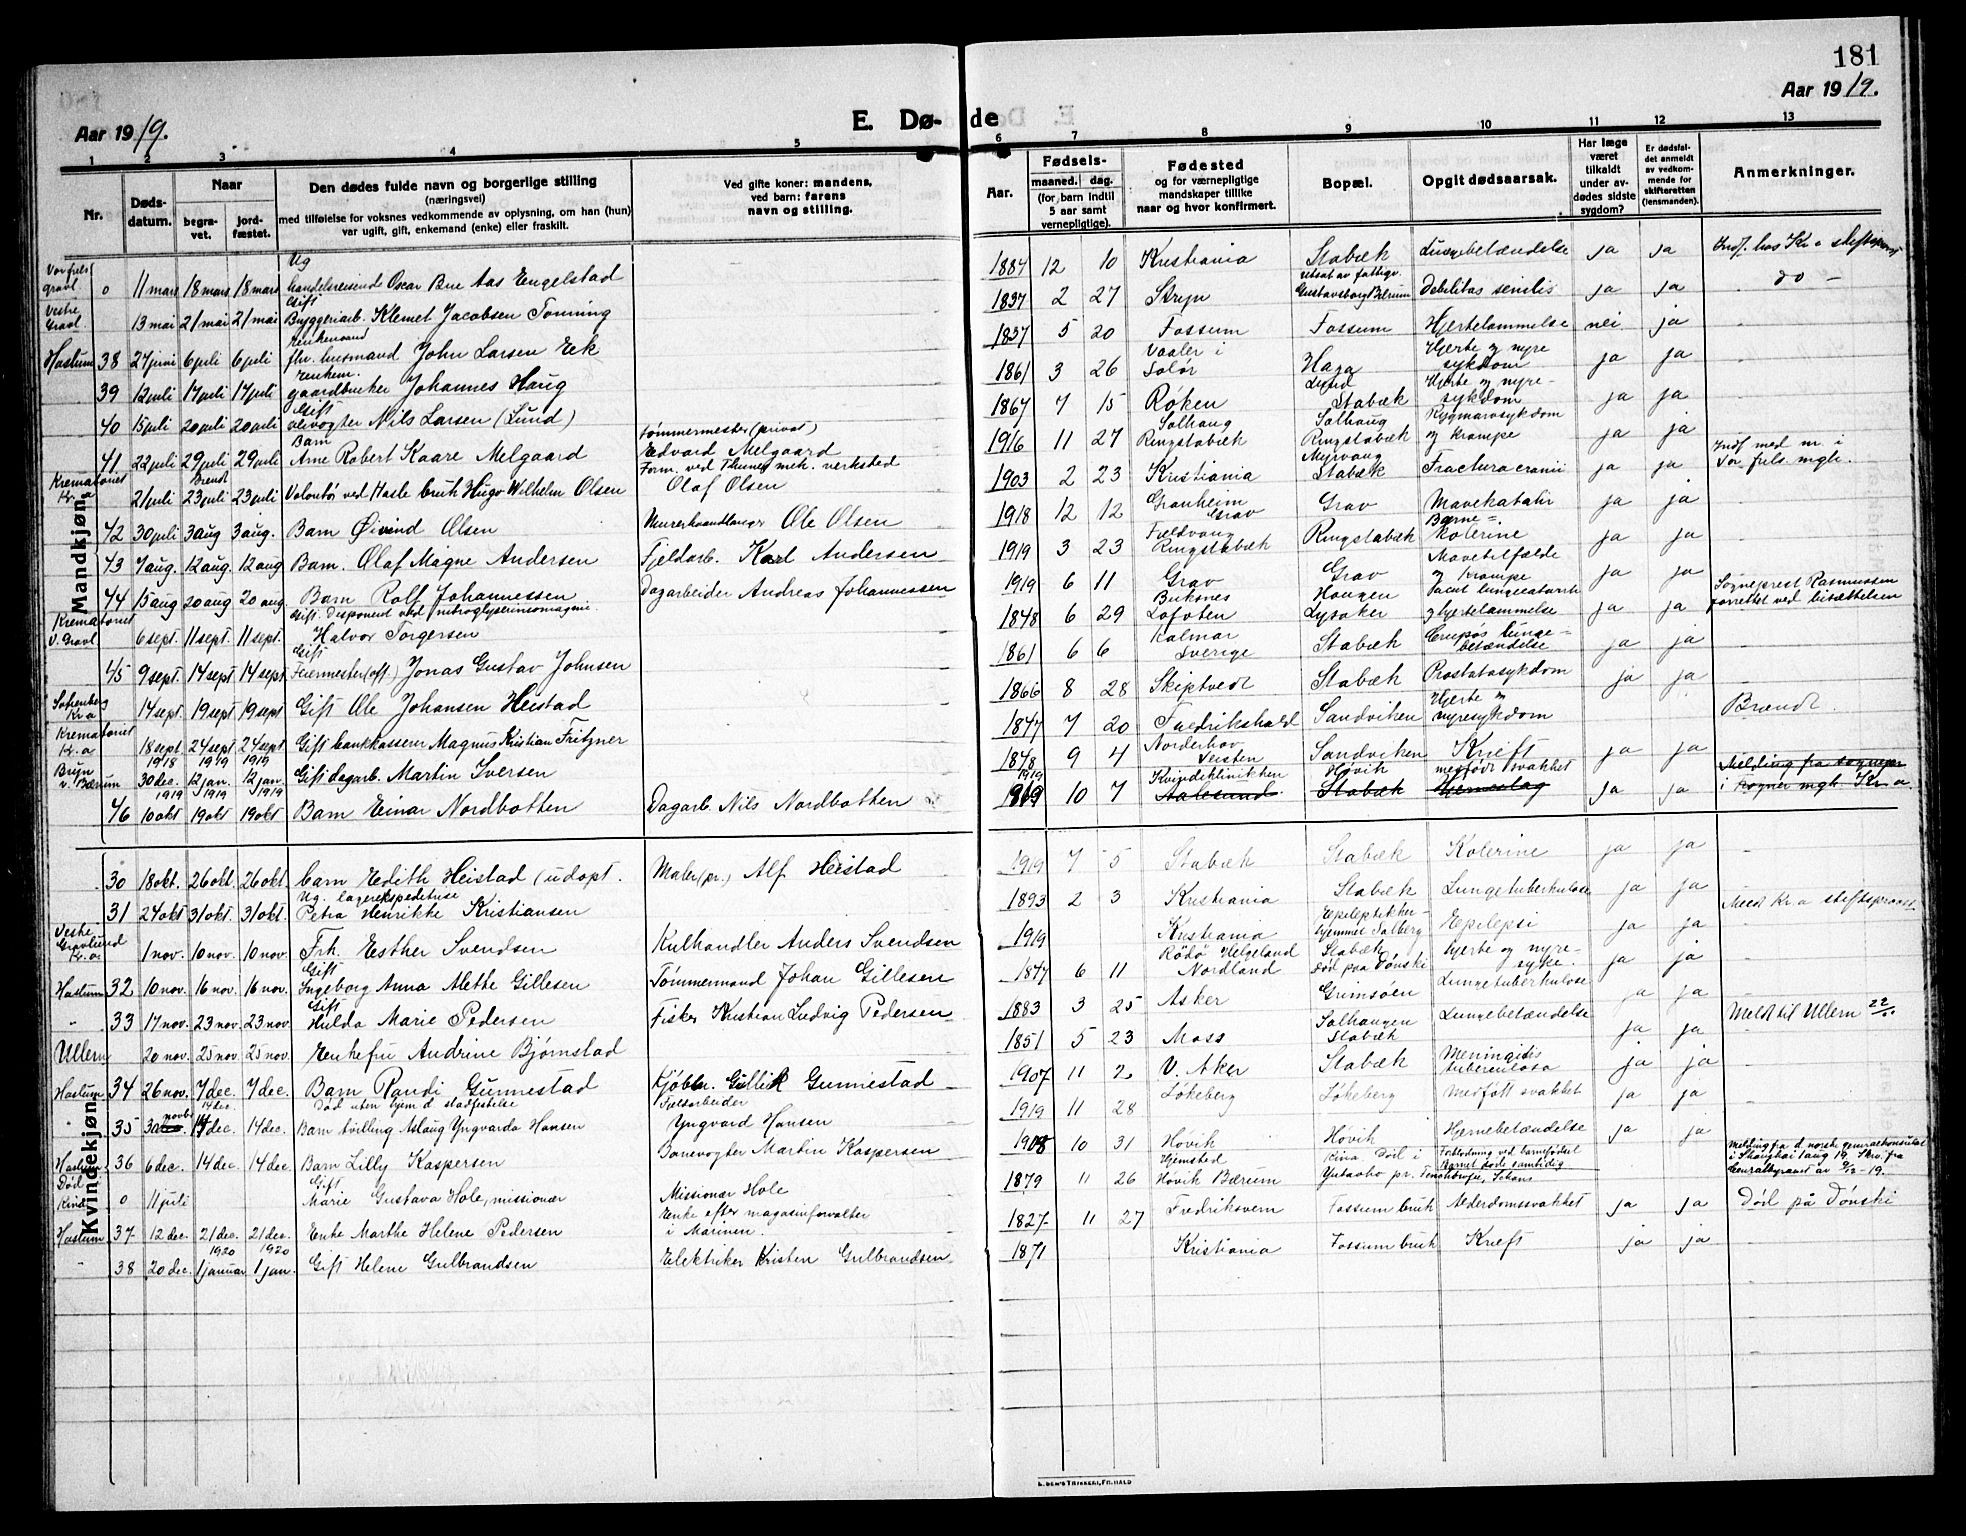 181
Aar 1919.
E. Dø-
de
Aar 1919.
1
2
3
4
5
6
7
8
9
10
11
12
13
Nr.
Døds-
datum.
Naar
begra-
vet.
jord-
fæstet.
Den dødes fulde navn og borgerlige stilling
(næringsvei)
med tilføielse for voksnes vedkommende av oplysning, om han (hun)
var ugift, gift, enkemand (enke) eller fraskilt.
Ved gifte koner: mandens,
ved barn: farens
navn og stilling.
Aar.
Fødsels-
maaned. dag.
(for barn indtil
5 aar samt
vernepligtige).
Fødested
og for værnepligtige
mandskaper tillike
naar og hvor konfirmert.
Bopæl.
Opgit dødsaarsak.
Har læge
været
tilkaldt
under av-
dødes sidste
sygdom?
Er dødsfal-
det anmeldt
av vedkom-
mende for
skifteretten
(lensmanden).
Anmerkninger.
Mandkjøn.
Vor frels
gravl. 0 11 mars 18 mars 18 mars Ug handelsreisende Oscar Bue Aas Engelstad 1884 12 10 Kristiania Stabæk Lungebetændelse ja ja
Vestre
Gravl. 13 mai 21 mai 21 mai Gift Bryggeriarb. Klemet Jacobsen Tonning 1837 2 27 Stryn Gustavsborg Bærum Debilitas senilis ja ja do -
Haslum 38 27 juni 6 juli 6 juli Enkemand fhv. husmand John Larsen Eek 1837 5 20 Fossum Fossum Hjertelammelse nei ja -
39 12 juli 17 juli 17 juli Enkem. gaardbruker Johannes Haug 1861 3 26 Vaaler i Solør Haga Hjerte og nyre sykdom ja ja -
40 15 juli 20 juli 20 juli Gift Nils Larsen (Lund) 1867 7 15 Røken Lund Stabæk Hjerte og nyre- sykdom ja ja -
41 22 juli 29 juli 29 juli Barn Arne Robert Kaare Melgaard Tømmermester (privat) Edvard Melgaard 1916 11 27 Solhaug Ringstabæk Solhaug Ringstabæk Rygmarvsykdom og krampe ja ja
Krematoriet
Kr.a 21 juli Brendt 23 juli 23 juli Volontør ved Hasle bruk Hugo Wilhelm Olsen Form. ved Thunes mek. verksted Olaf Olsen 1903 2 23 Kristiania Myrvang Stabæk Fractura cranii ja ja Indf. med nr. i Vor frels. mgh.
42 30 juli 3 aug 3 aug. Barn Øivind Olsen Murerhandlanger Ole Olsen 1918 12 12 Granheim Grav Grav Mavekatahr ja ja -
43 7 aug. 12 aug. 12 aug Barn. Olaf Magne Andersen Fjeldarb. Karl Andersen 1919 3 23 Fjeldvang Ringstabæk Ringstabæk Barne- kolerine ja ja -
44 15 aug 20 aug 20 aug. Barn Rolf Johannessen Dagarbeider Andreas Johannessen 1919 6 11 Grav Grav Mavetilfælde og krampe ja ja
Krematoriet
V. Gravl 6 sept. 11 sept. 11 sept. Gift. Disponent ved nitroglyserinsmagasin. Halvor Torgersen 1848 6 29 Buksnes Lofoten Haugen Lysaker og hjertelammelse ja ja Sogneprest Rasmussen forrettet ved bisættelsen
45 9 sept. 14 sept 14 sept Gift Jonas Gustav Johnsen 1861 6 6 Kalmar Sverige Stabæk Lunge- betændelse ja ja -
Kr.a 14 sept. 19 sept 19 sept Gift Ole Johansen Heistad 1866 8 28 Skiptvedt Stabæk Prostatasykdom ja ja -
Krematoriet
Kr.a. 18 sept. 24 sept 24 sept Gift bankkasserer Magnus Kristian Fritzner 1847 7 20 Fredrikshald Sandviken Hjerte og nyresykdom Brændt.
Bryn
v. Bærum 1918 30 dec. 1919 12 jan. 1919 12 jan. Gift dagarb. Martin Iversen 1848 9 4 Norderhov Sandviken Kræft ja ja -
46 1919 10 okt 1919 19 okt 1919 19 okt Barn Einar Nordbotten Dagarb. Nils Nordbotten 1919 10 7 Kvindeklinikken Aalesund Høvik Stabæk medfødt svakhet Hjerneslag ja ja Melding fra sognepr. i Vogner mgh. Kr.a.
Kvindekjøn.
30 18 okt. 26 okt. 26 okt barn Edith Heistad (udøpt. Maler (pr.) Alf Heistad 1919 7 5 Stabæk Stabæk Kolerine ja ja -
31 24 okt 31 okt. 31 okt. Ug. lagerekspeditrise Petra Henrikke Kristiansen 1893 2 3 Kristiania Stabæk Lungetuberkulose ja ja -
Vestre
Gravlund
Kr.a. 1 nov. 10 nov. 10 nov. Frk. Esther Svendsen Kulhandler Anders Svendsen 1919 Kristiania Epileptikker- hjemmet Solberg Epilepsi ja ja Meldt Kr.a stiftsprovst
Haslum 32 10 nov. 16 nov. 16 nov. Gift Ingeborg Anna Alethe Gillesen Tømmermand Johan Gillesen 1847 6 11 Rødø Helgeland Nordland Stabæk død paa Dønski Hjerte og nyre- syke. ja ja -
" 33 17 nov. 23 nov. 23 nov. Gift Hulda Marie Pedersen Fisker Kristian Ludvig Pedersen 1883 3 25 Asker Grimsøen Lungetuberkulose ja ja -
Ullern 20 nov. 25 nov. 25 nov. Enkefru Andrine Bjørnstad 1851 5 23 Moss Solhaugen Stabæk Lungebetændelse ja ja Meldt til Ullern 22/11
Haslum 34 26 nov. 7 dec. 7 dec. Barn Randi Gunnestad Kjøbm. Gullik Gunnestad 1907 11 2 V. Aker Stabæk Meningitis tuberculosa ja ja -
" 35 30 novbr 14 dec. 14 dec. Død uten hjemd. stadfestelse Barn tvilling Aslaug Yngvarda Hansen Fjeldarbeider Yngvard Hansen 1919 11 28 Løkeberg Løkeberg Medfødt svakhet ja ja -
Haslum 36 6 dec. 14 dec. 14 dec. Barn Lilly Kaspersen Banevogter Martin Kaspersen 1908 10 31 Høvik Høvik Hjernebetændelse ja ja
Død i
Kina 0 11 juli Gift Marie Gustava Hole, missionær Missionær Hole 1879 11 26 Hjemsted Høvik Bærum Kina Død i Forblødning ved barnefødsel Barnet døde samtidig Melding fra d. norske generalkonsulat i Shanghai 1 aug 19. Skr. fra
Haslum 37 12 dec. 21 dec. 21 dec. Enke Marthe Helene Pedersen Enke efter magasinforvalter i Marinen. 1827 11 27 Fredriksvern Fossum bruk Alderdomssvakhet ja ja Død på Dønski
" 38 20 dec. 1920 1 januar 1920 1 jan. Gift Helene Gulbrandsen Elektriker Kristen Gulbrandsen 1871 Kristiania Fossum bruk Kræft ja ja -